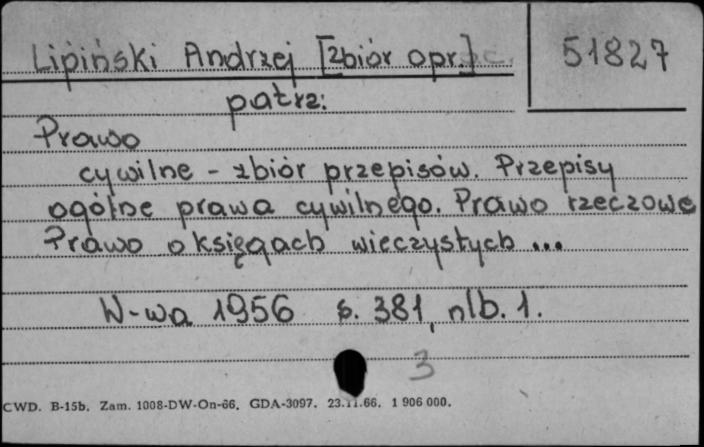 Lipiński Andrzej [zbiór opr.]
51827
patrz:
Prawo
cywilne - zbiór przepisów. Przepisy
ogólne prawa cywilnego. Prawo rzeczowe
Prawo o księgach wieczystych ...
W-wa 1956 s. 381, nlb. 1.
3
CWD. B-15b. Zam. 1008-DW-On-66. GDA-3097. 23.11.66. 1 906 000.